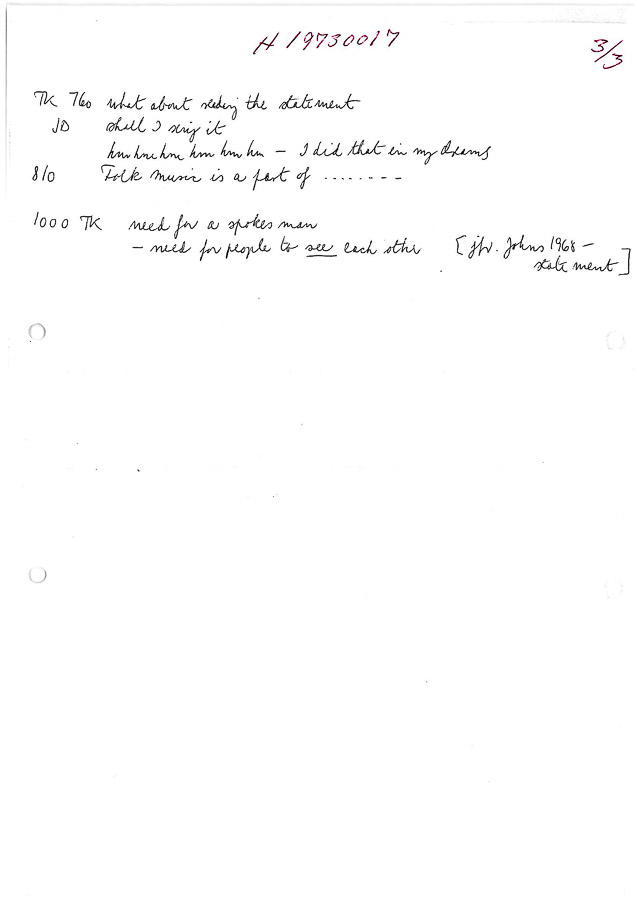 H 19730017
3/3
TK 760 what about reading the statement
JD shall I sing it
hm hm hm hm hm hm — I did that in my dreams
810 Folk music is a part of ........
1000 TK need for a spokes man
– need for people to see each other [jfr. Johns 1968 –
statement]